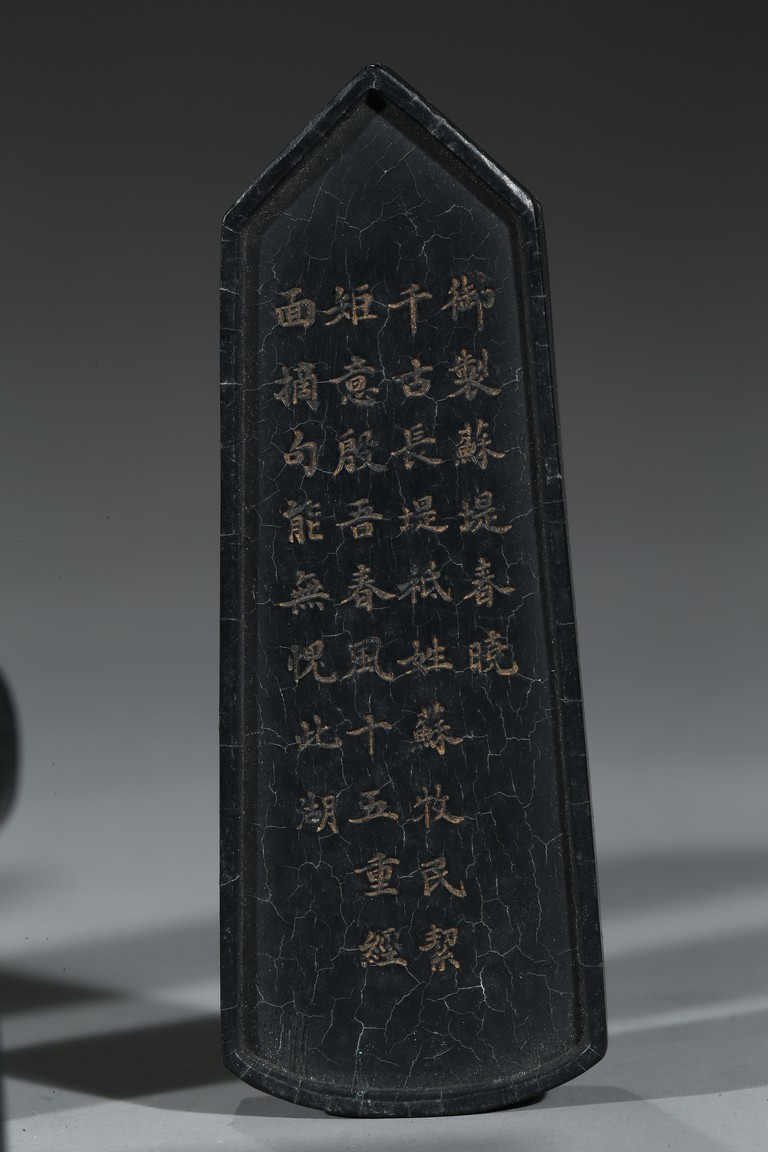 御製蘇堤春曉
千古長堤祗姓蘇牧民絜
矩意殷吾春風十五重經
面摛句能無愧此湖